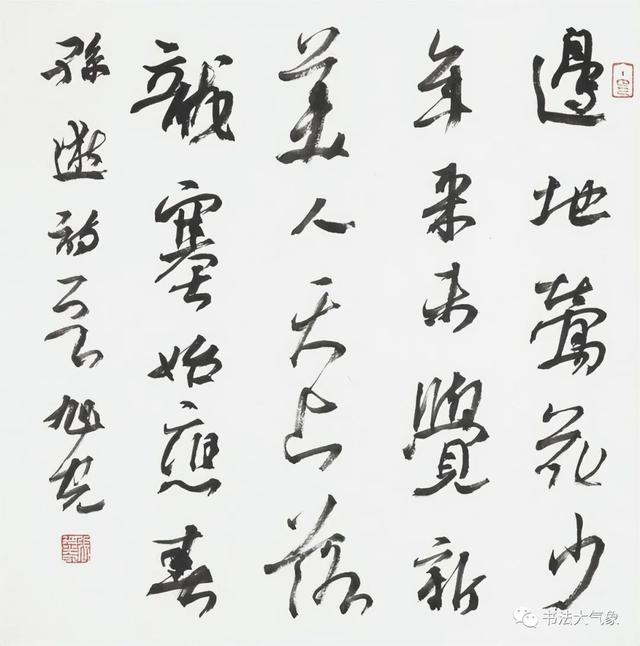 邊地鶯花少
年來未覺新
美人天上落
龍塞始應春
孫逖詩一首 旭光
书法大气象